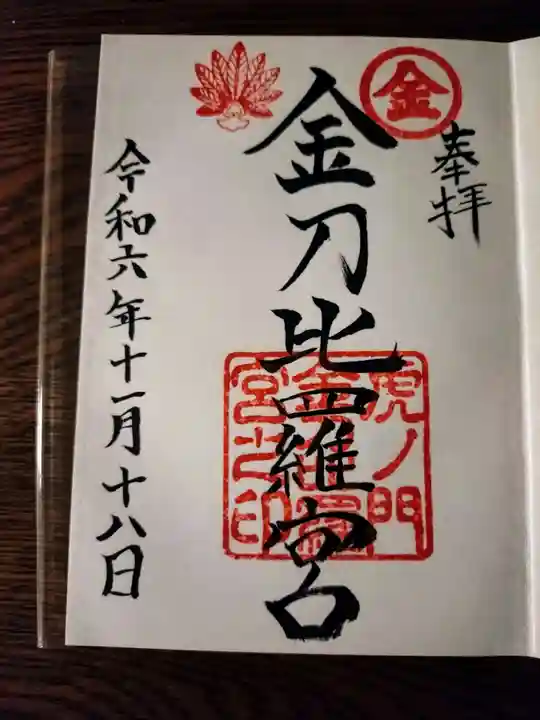 金
奉拝
金刀比羅宮
虎ノ門
宮之印
令和六年十一月十八日